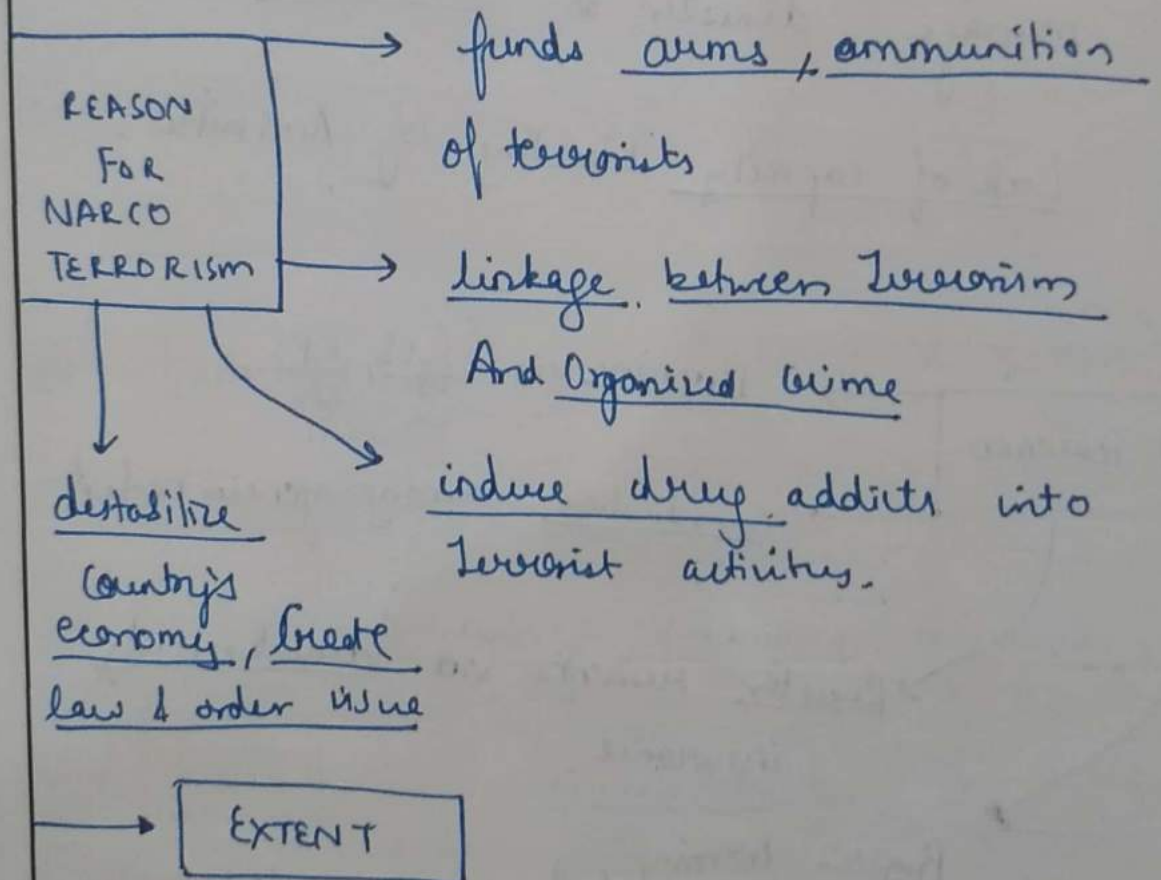 REASON
FOR
NARCO
TERRORISM
funds arms, ammunition
of terrorists
linkage between Terrorism
And Organized Crime
induce drug addicts into
Terrorist activities.
destabilize
Country's
economy, Create
law & order issue
EXTENT